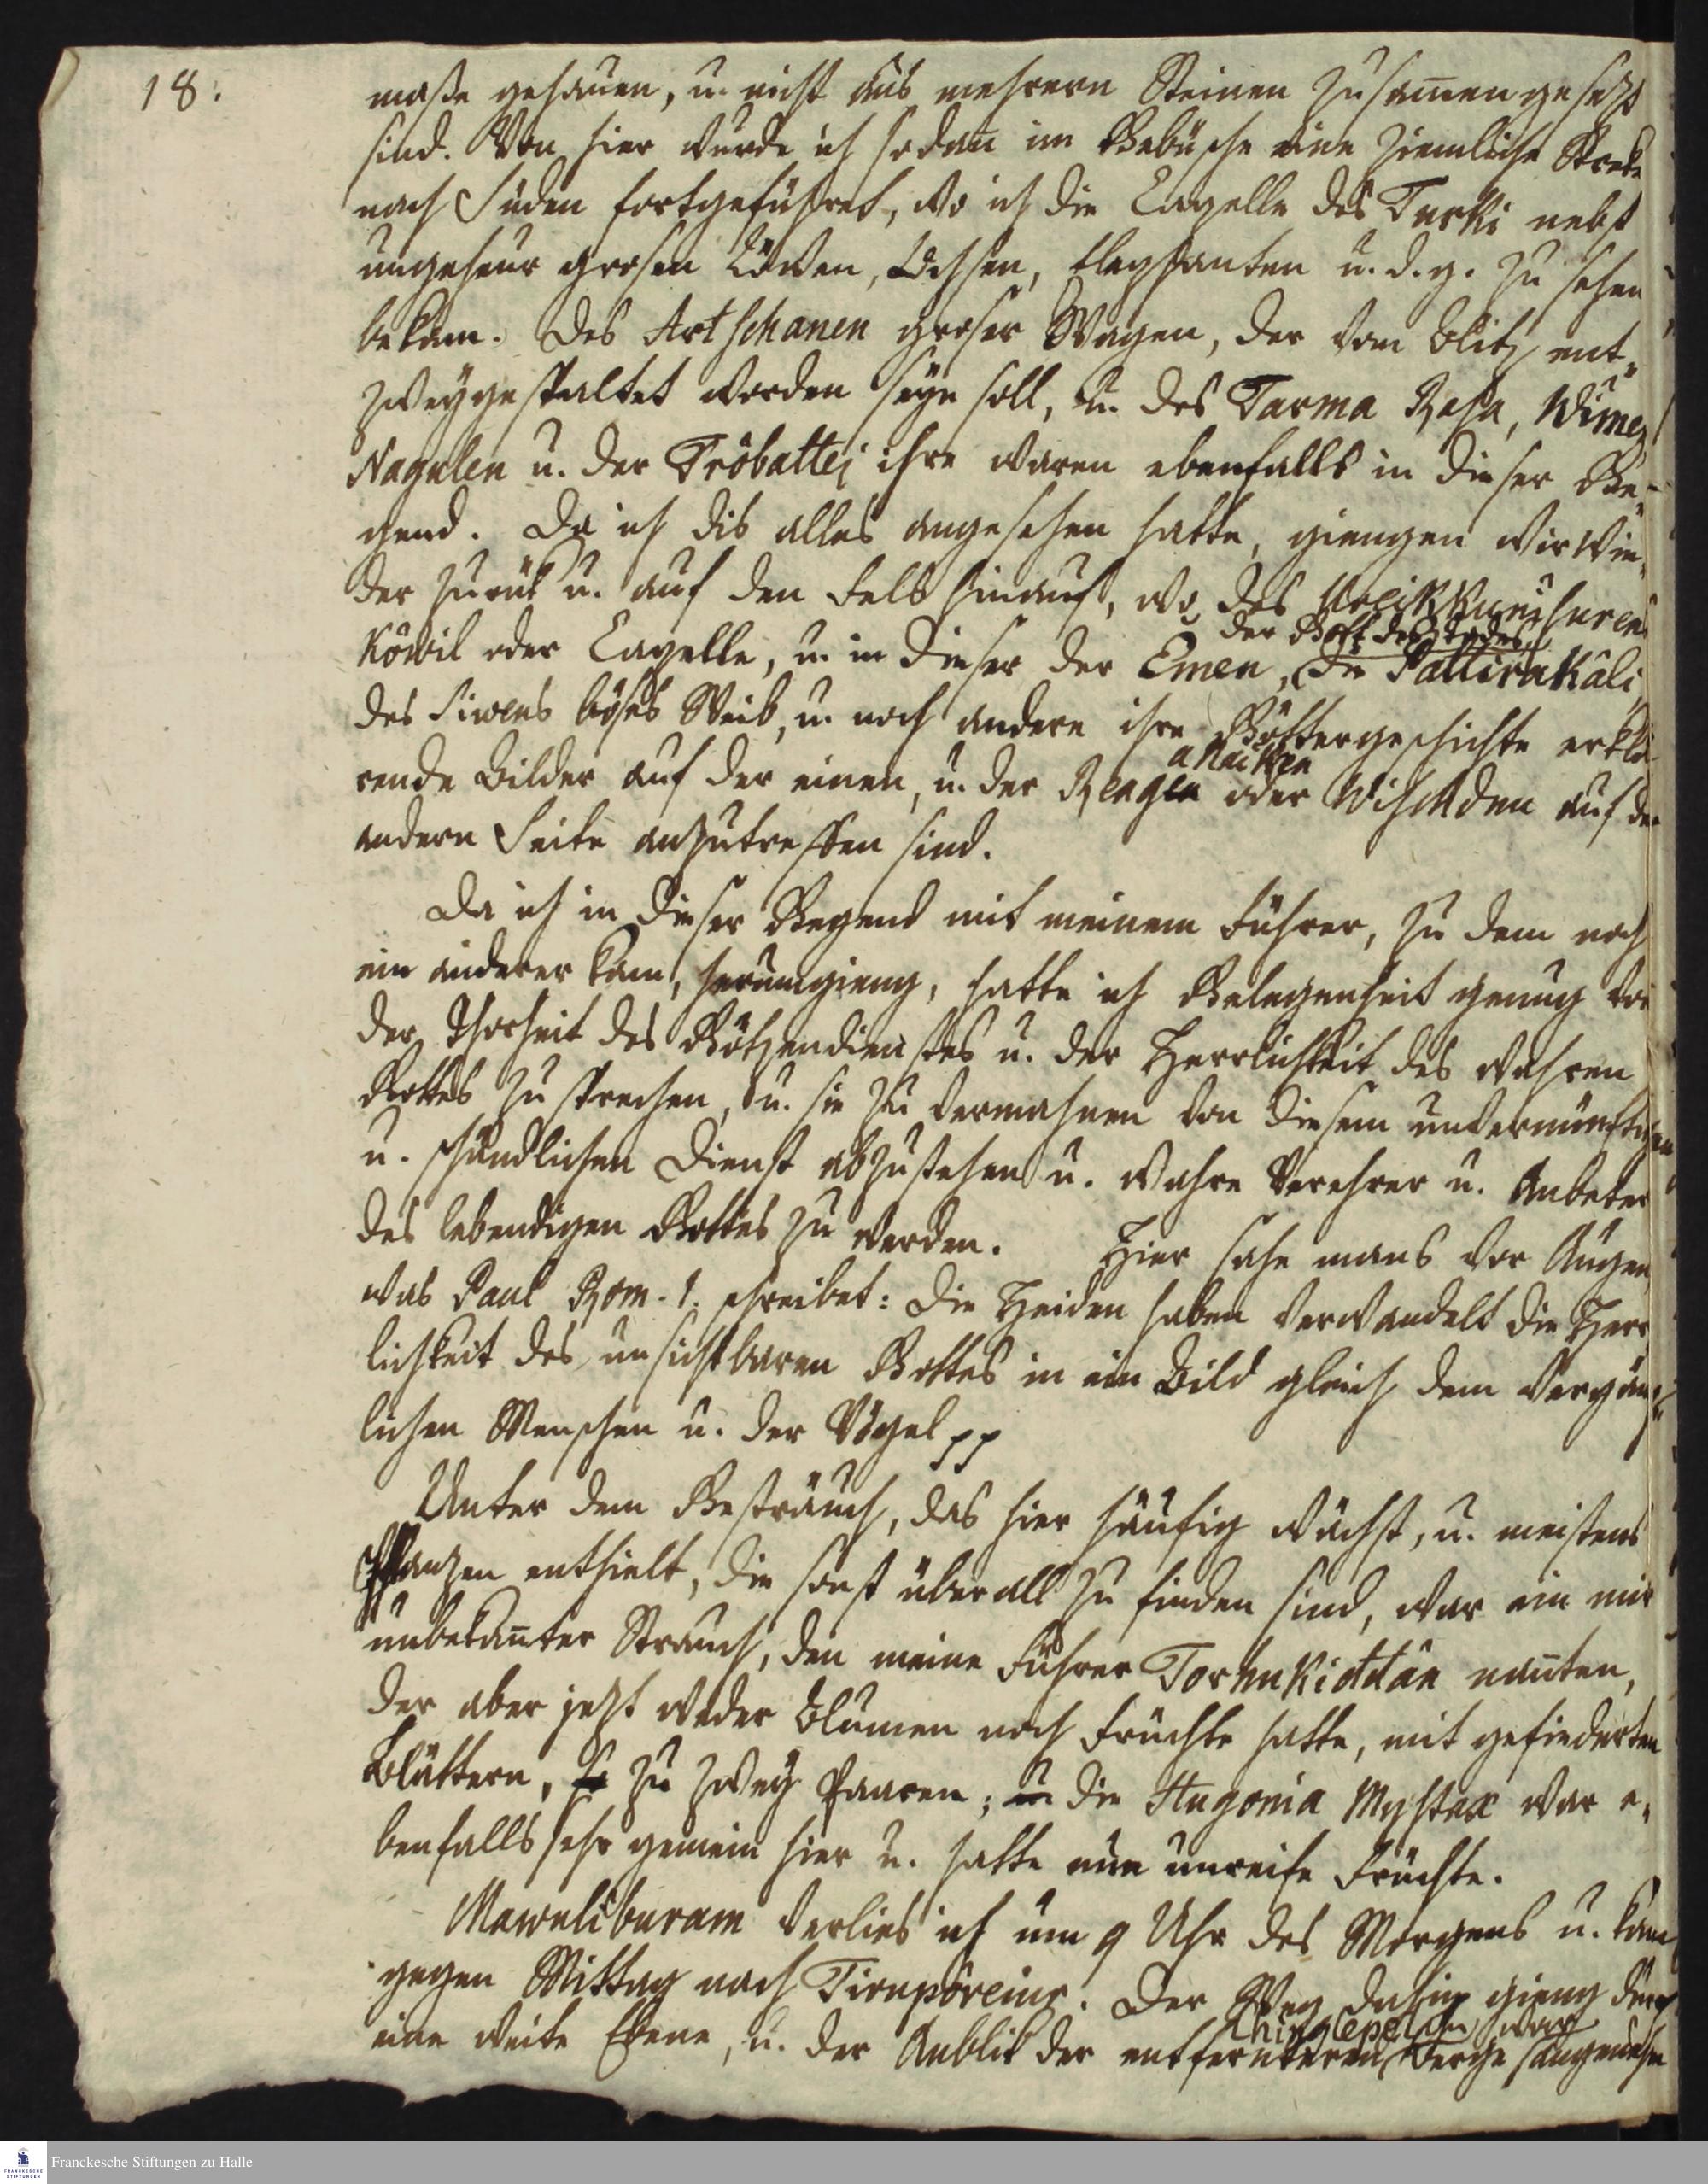 18.
maße gehauen, u. nicht aus mehrern Steinen zusam̅en gesezt
sind. Von hier wurde ich sodan̅ im Gebüsche eine ziemliche Streke
nach Süden fortgeführet, wo ich die Capelle des Turki nebst
ungeheur grosen Löwen, Ochsen, Elephanten u. d. g. zu sehen
bekam. Des Artschanen groser Wagen, der vom Blitz ent-
zweygespaltet worden seyn soll, u. des Tarma Rasa, Wimen
Nagulen u. der Tröbattei ihre waren ebenfalls in dieser Ge-
gend. Da ich dis alles angesehen hatte, giengen wir wie-
der zurük u. auf den Fels hinauf, wo des
der Gott des Todes
Köwil oder Capelle, u. in dieser der Emen, die Pattirakâli,
des Siwens böses Weib, u. noch andere ihre Göttergeschichte erklä-
anaicken
rende Bilder auf der einen, u. der Reagen oder Wischden auf der
andern Seite anzutreffen sind.
Da ich in dieser Gegend mit meinem Führer, zu dem noch
ein anderer kam, herumgieng, hatte ich Gelegenheit genug von
der Thorheit des Götzendienstes u. der Herrlichkeit des wahren
Gottes zu sprechen, u. sie zu vermahnen von diesem unvernünftigen
u. schändlichen Dienst abzustehen u. wahre Verehrer u. Anbeter
des lebendigen Gottes zu werden. Hier sahe mans vor Augen
was Paul Rom. 1. schreibet: Die Heiden haben verwandelt die Herr-
lichkeit des unsichtbaren Gottes in ein Bild gleich dem vergäng-
lichen Menschen u. der Vögel pp
Unter dem Gesträuch, das hier häufig wächst, u. meistens
Pflanzen enthielt, die sonst überall zu finden sind, war ein mir
unbekan̅ter Strauch, den meine Führer Torhukiddân nan̅ten,
der aber jezt weder Blumen noch Früchte hatte, mit gefiederten
Blättern, zu zwey Paaren; die Hugonia Mystax war e-
benfalls sehr gemein hier u. hatte nun unreife Früchte.
Mawuliburam verlies ich um 9 Uhr des Morgens u. kam
gegen Mittag nach Tirupôreiur. Der Weg dahin gieng durch
Chinglepel war
eine weite Ebene, u. der Anblik der entfernteren Berge angenehm
Franckesche Stiftungen zu Halle
FRANCKESCHE STIFTUNGEN